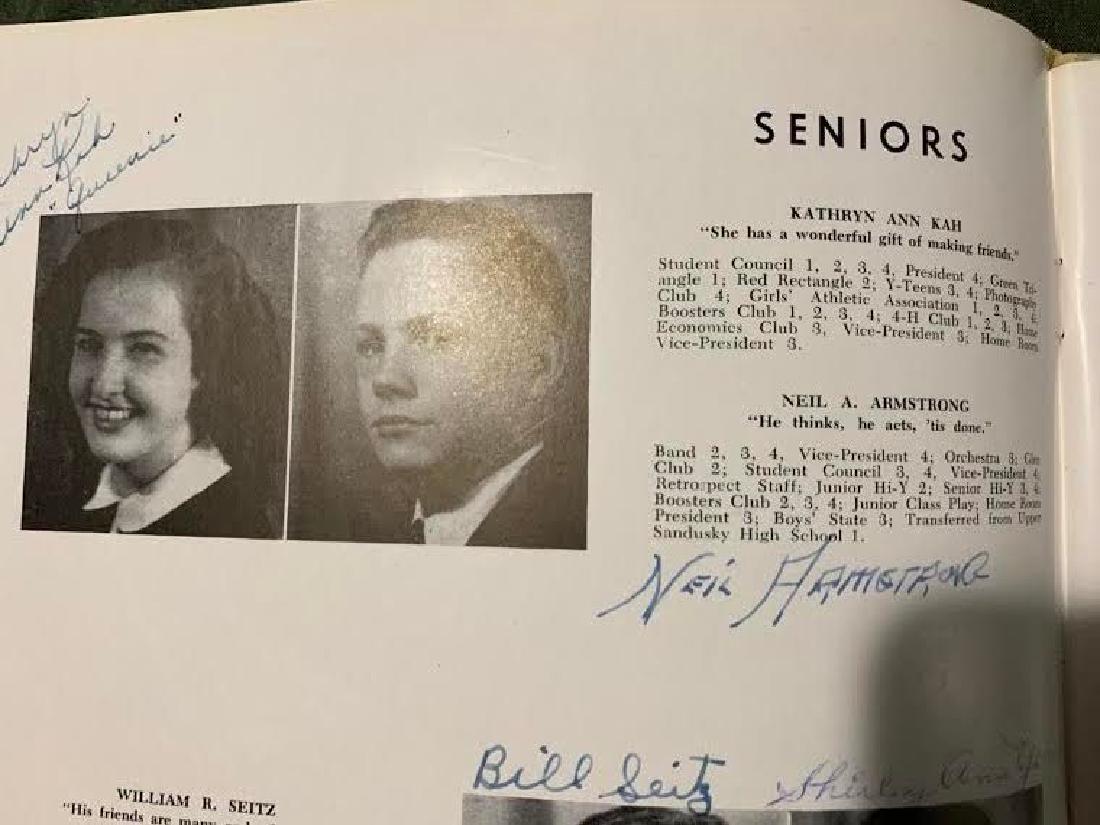 Kah
"Queenie"
SENIORS
KATHRYN ANN KAH
"She has a wonderful gift of making friends."
Student Council 1, 2, 3, 4, President 4; Green Tri-
angle 1; Red Rectangle 2; Y-Teens 3, 4; Photography
Club 4; Girls' Athletic Association 1, 2, 3, 4;
Boosters Club 1, 2, 3, 4; 4-H Club 1, 2, 3; Home
Economics Club 3, Vice-President 3; Home Room
Vice-President 3.
NEIL A. ARMSTRONG
"He thinks, he acts, 'tis done."
Band 2, 3, 4, Vice-President 4; Orchestra 3; Glee
Club 2; Student Council 3, 4, Vice-President 4;
Retrospect Staff; Junior Hi-Y 2; Senior Hi-Y 3, 4;
Boosters Club 2, 3, 4; Junior Class Play; Home Room
President 3; Boys' State 3; Transferred from Upper
Sandusky High School 1.
Neil Armstrong
Bill Seitz Shirley Ann
WILLIAM R. SEITZ
"His friends are many